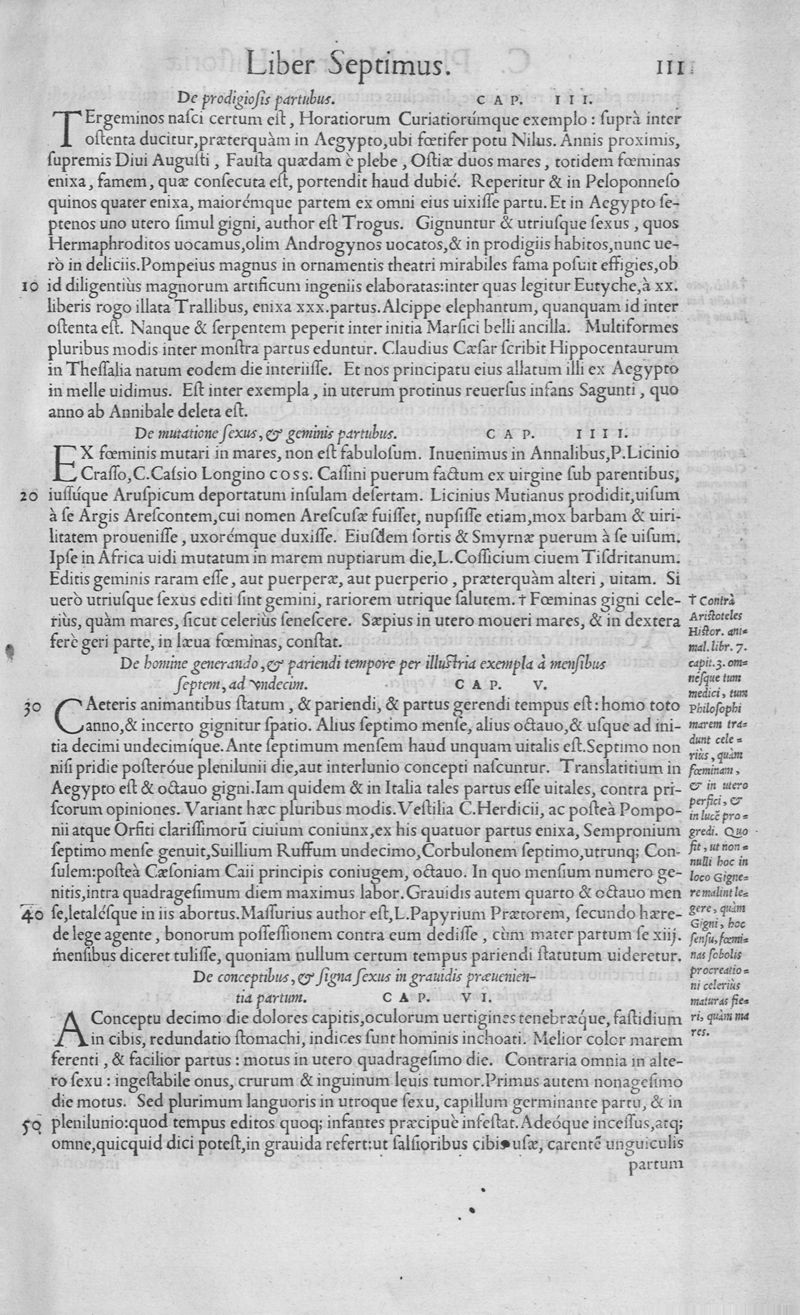 Liber Septimus. 111
De prodigiosis partubus. CAP. III.
TErgeminos nasci certum est, Horatiorum Curiatiorúmque exemplo : suprà inter
ostenta ducitur,præterquàm in Aegypto,ubi fœtifer potu Nilus. Annis proximis,
supremis Diui Augusti , Fausta quædam è plebe , Ostiæ duos mares , totidem fœminas
enixa, famem, quæ consecuta est, portendit haud dubié. Reperitur & in Peloponneso
quinos quater enixa, maiorémque partem ex omni eius uixisse partu.Et in Aegypto se-
ptenos uno utero simul gigni, author est Trogus. Gignuntur & utriusque sexus , quos
Hermaphroditos uocamus,olim Androgynos uocatos,& in prodigiis habitos,nunc ue-
rò in deliciis.Pompeius magnus in ornamentis theatri mirabiles fama posuit effigies,ob
10 id diligentiùs magnorum artificum ingeniis elaboratas:inter quas legitur Eutyche,à xx.
liberis rogo illata Trallibus, enixa xxx.partus.Alcippe elephantum, quanquam id inter
ostenta est. Nanque & serpentem peperit inter initia Marsici belli ancilla. Multiformes
pluribus modis inter monstra partus eduntur. Claudius Cæsar scribit Hippocentaurum
in Thessalia natum eodem die interiisse. Et nos principatu eius allatum illi ex Aegypto
in melle uidimus. Est inter exempla , in uterum protinus reuersus infans Sagunti , quo
anno ab Annibale deleta est.
De mutatione sexus, & geminis partubus. CAP. IIII.
EX fœminis mutari in mares, non est fabulosum. Inuenimus in Annalibus,P.Licinio
Crasso,C.Cassio Longino coss. Cassini puerum factum ex uirgine sub parentibus,
20 iussúque Aruspicum deportatum insulam desertam. Licinius Mutianus prodidit,uisum
à se Argis Arescontem,cui nomen Arescusæ fuisset, nupsisse etiam,mox barbam & uiri-
litatem prouenisse , uxorémque duxisse. Eiusdem sortis & Smyrnæ puerum à se uisum.
Ipse in Africa uidi mutatum in marem nuptiarum die,L.Cossicium ciuem Tisdritanum.
Editis geminis raram esse, aut puerperæ, aut puerperio , præterquàm alteri , uitam. Si
uerò utriusque sexus editi sint gemini, rariorem utrique salutem. † Fœminas gigni cele-
riùs, quàm mares, sicut celeriùs senescere. Sæpius in utero moueri mares, & in dextera
ferè geri parte, in læua fœminas, constat.
De homine generando, & pariendi tempore per illustria exempla à mensibus
septem, ad undecim. CAP. V.
30 CAeteris animantibus statum , & pariendi, & partus gerendi tempus est : homo toto
anno,& incerto gignitur spatio. Alius septimo mense, alius octauo,& usque ad ini-
tia decimi undecimíque.Ante septimum mensem haud unquam uitalis est.Septimo non
nisi pridie posteróue plenilunii die,aut interlunio concepti nascuntur. Translatitium in
Aegypto est & octauo gigni.Iam quidem & in Italia tales partus esse uitales, contra pri-
scorum opiniones. Variant hæc pluribus modis.Vestilia C.Herdicii, ac posteà Pompo-
nii atque Orfiti clarissimorū ciuium coniunx,ex his quatuor partus enixa, Sempronium
septimo mense genuit,Suillium Ruffum undecimo,Corbulonem septimo,utrunq; Con-
sulem:posteà Cæsoniam Caii principis coniugem, octauo. In quo mensium numero ge-
nitis,intra quadragesimum diem maximus labor.Grauidis autem quarto & octauo men
40 se,letalésque in iis abortus.Massurius author est,L.Papyrium Prætorem, secundo hære-
de lege agente , bonorum possessionem contra eum dedisse , cùm mater partum se xiij.
mensibus diceret tulisse, quoniam nullum certum tempus pariendi statutum uideretur.
De conceptibus, & signa sexus in grauidis præuenien-
tia partum. CAP. VI.
A Conceptu decimo die dolores capitis,oculorum uertigines tenebræq́ue, fastidium
in cibis, redundatio stomachi, indices sunt hominis inchoati. Melior color marem
ferenti , & facilior partus : motus in utero quadragesimo die. Contraria omnia in alte-
ro sexu : ingestabile onus, crurum & inguinum leuis tumor.Primus autem nonagesimo
die motus. Sed plurimum languoris in utroque sexu, capillum germinante partu, & in
50 plenilunio:quod tempus editos quoq; infantes præcipuè infestat.Adeóque incessus,atq;
omne,quicquid dici potest,in grauida refert:ut salsioribus cibis usæ, carentē unguiculis
partum
† Contrà
Aristoteles
Histor. ani=
mal. libr. 7.
capit.3. om=
nesque tum
medici, tum
Philosophi
marem tra=
dunt cele=
riùs, quàm
fœminam,
& in utero
perfici, &
in lucē pro=
gredi. Quo
fit, ut non=
nulli hoc in
loco Gigne=
re malint le=
gere, quàm
Gigni, hoc
sensu, fœmi=
nas sobolis
procreatio=
ni celeriùs
maturas fie=
ri, quàm ma
res.